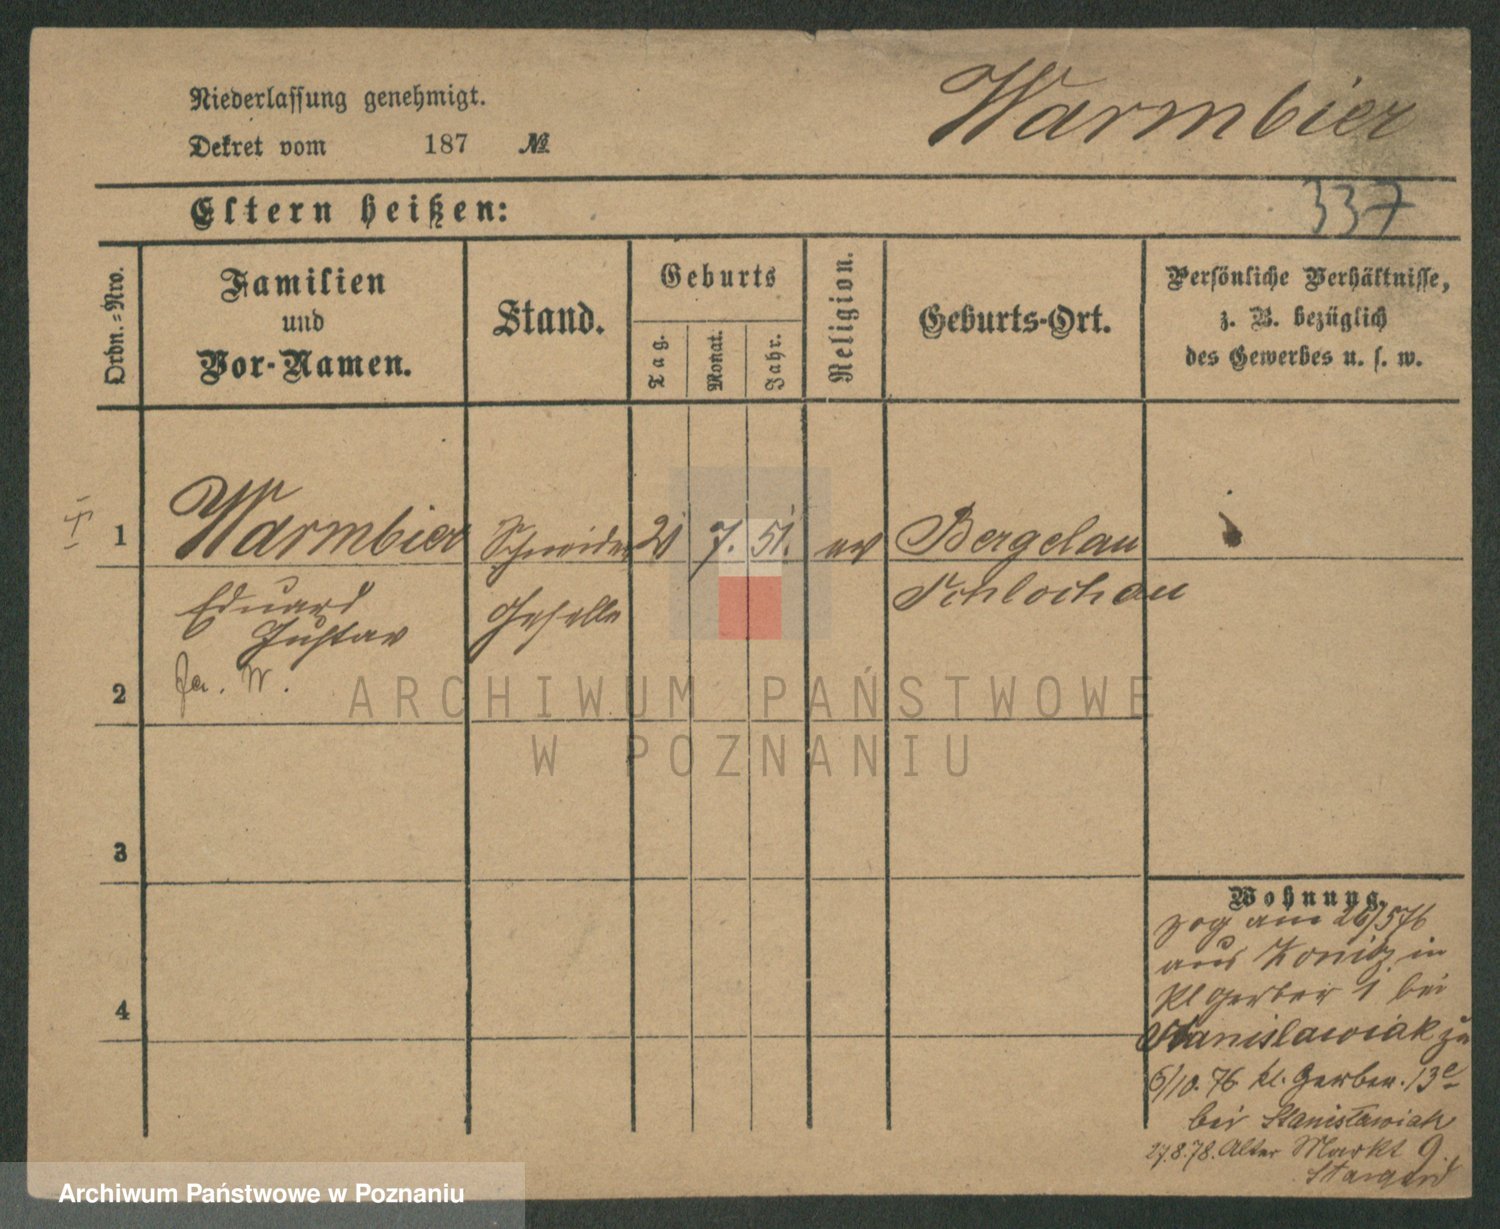 Niederlassung genehmigt.
Warmbier
Dekret vom 187 №
Eltern heißen:
337
Ordn.-Nro.
Familien
und
Vor-Namen.
Stand.
Geburts
Tag.
Monat.
Jahr.
Religion.
Geburts-Ort.
Persönliche Verhältnisse,
z. B. bezüglich
des Gewerbes u. s. w.
1 Warmbier Schneider 7. 51. ev Bergelau
Eduard Geselle Schlochau
Gustav
2 W.
ARCHIWUM PAŃSTWOWE
W POZNANIU
3
4
Wohnung.
zog am 26/5 76
aus Konitz in
Kl Gerber 1 bei
Stanislawiak zu
6/10. 76 Kl. Gerber. 13
bei Stanisławiak
27.8.78. Alter Markt 9.
Stargard
Archiwum Państwowe w Poznaniu